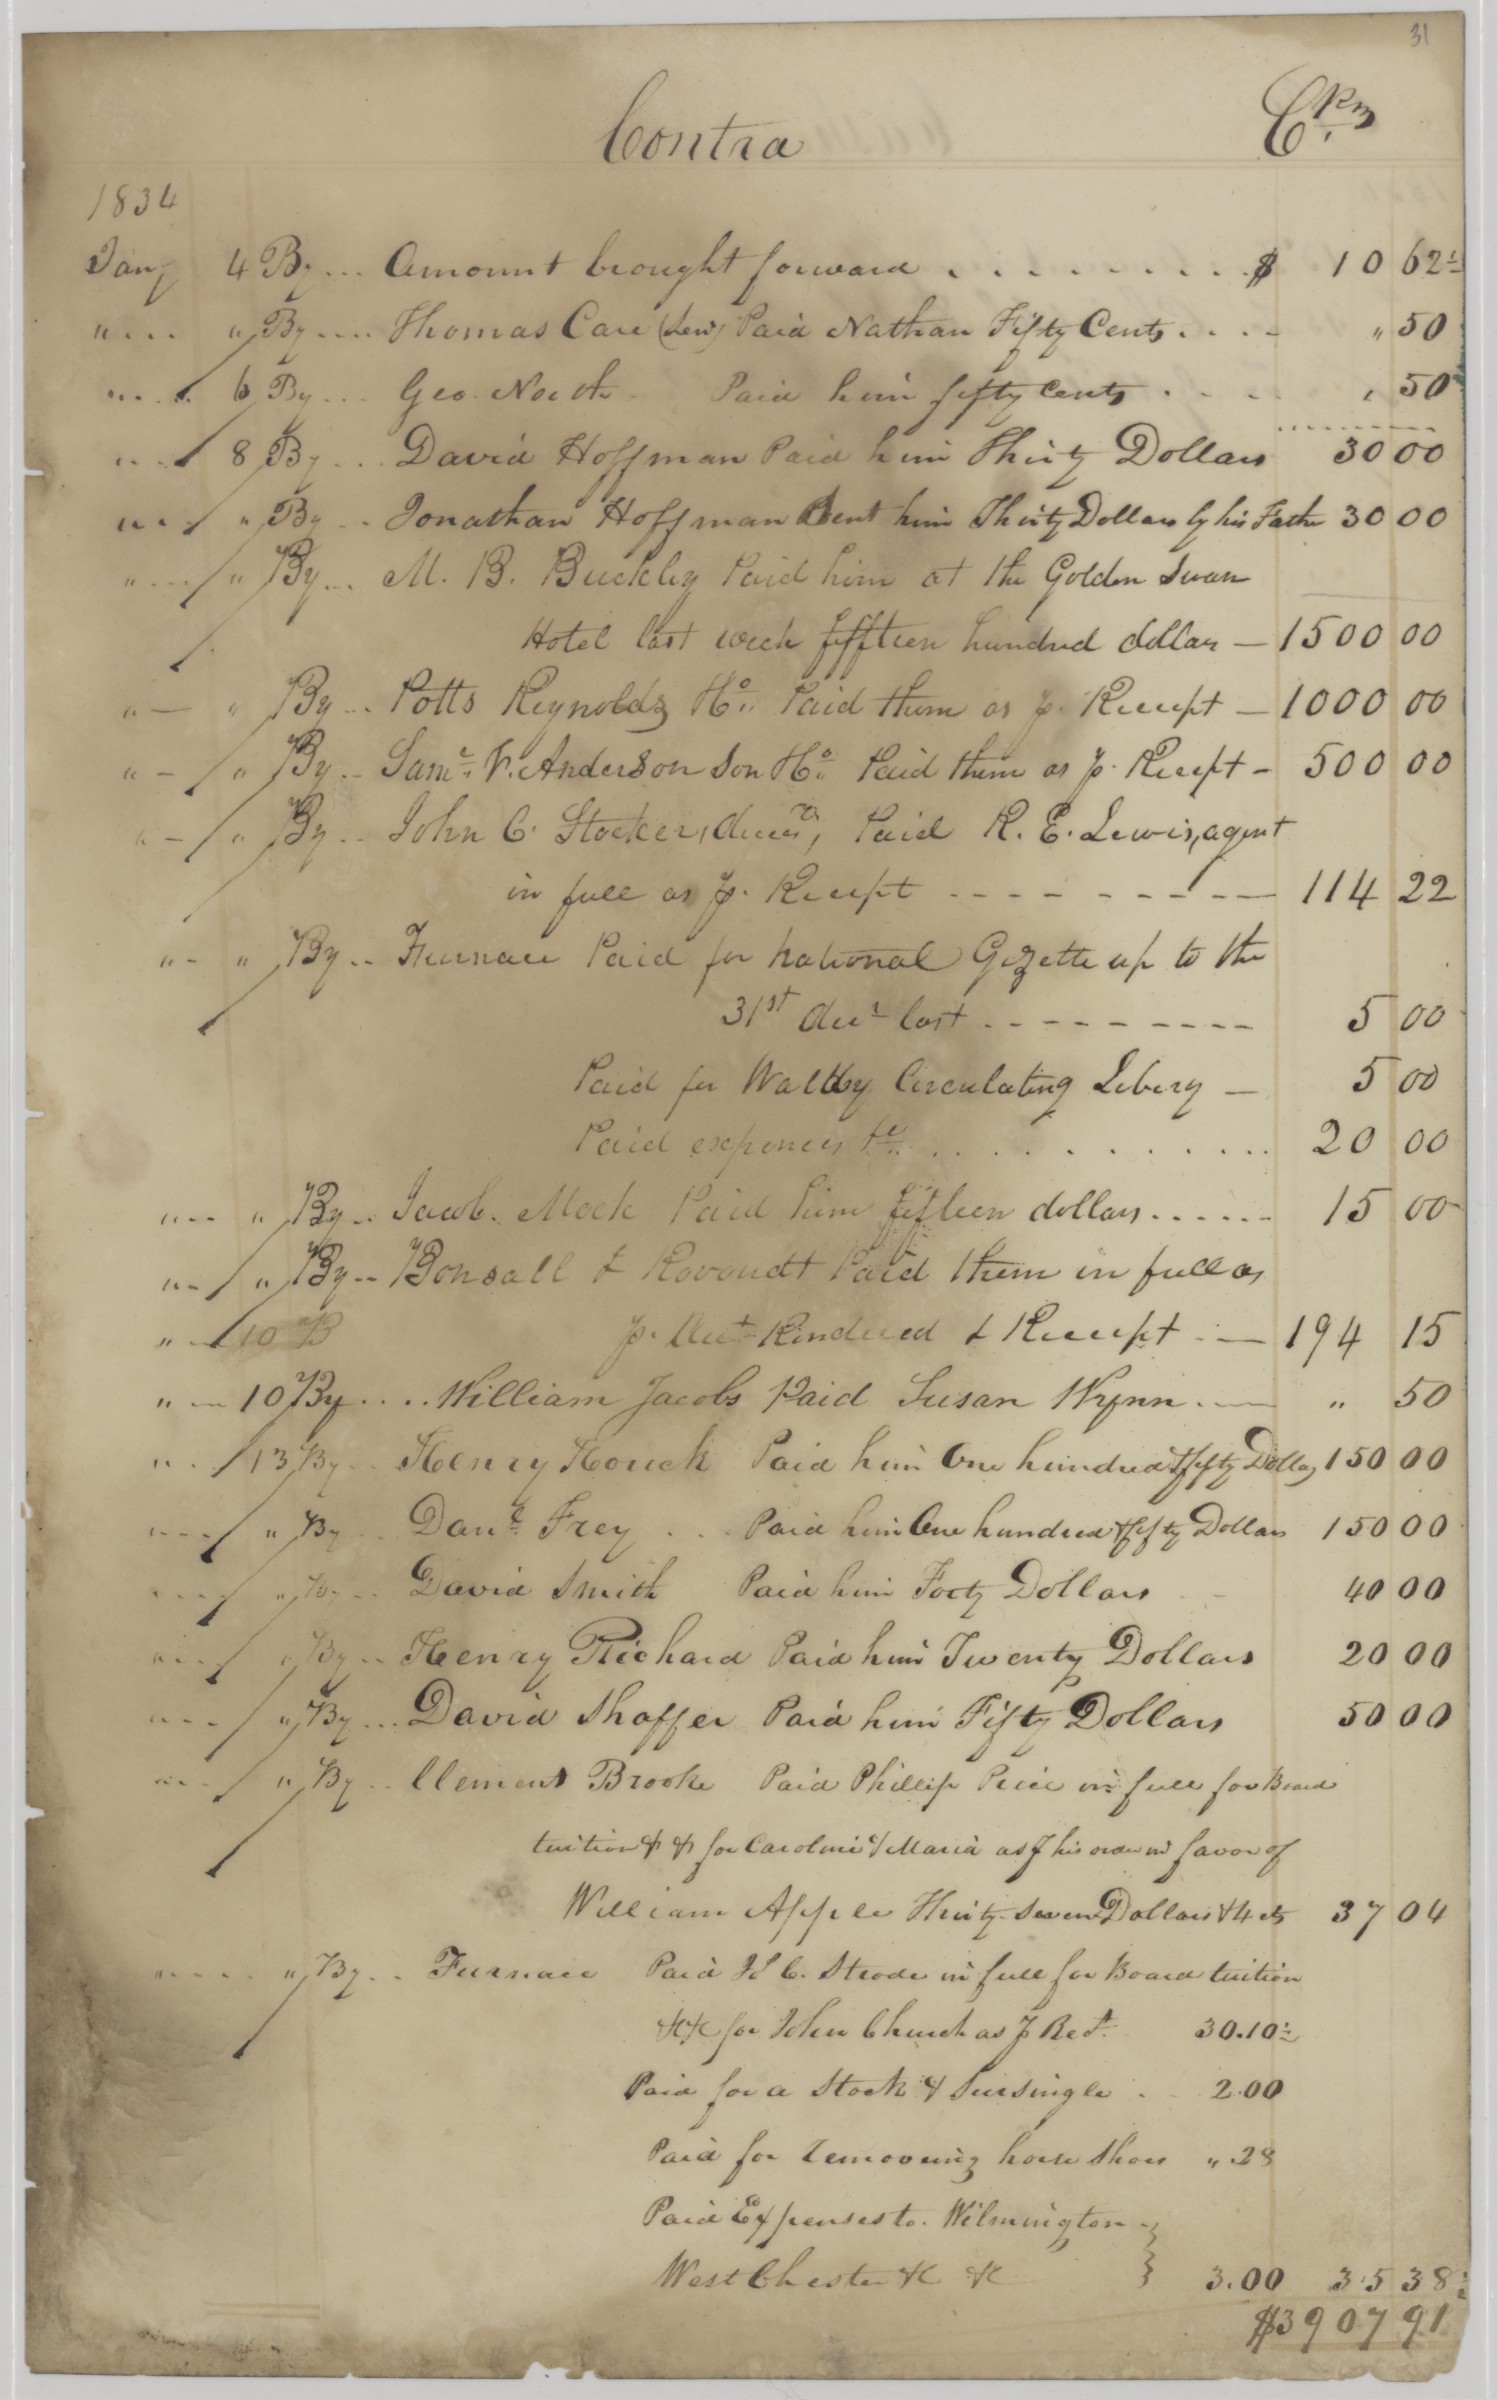 31
Contra Cr.
1834
Jany 4 By ... Amount brought forward . . . . . . . . . $ 10 62½
" ... " By .... Thomas Care (Lew) Paid Nathan Fifty Cents . . . - " 50
" ... 6 By ... Geo. North. Paid him fifty cents . . . . " 50
" ... 8 By ... David Hoffman Paid him Thirty Dollars 30 00
" ... " By ... Jonathan Hoffman Sent him Thirty Dollars by his Father 30 00
" ... " By ... M. B. Buckley Paid him at the Golden Swan
Hotel last week fiffteen hundred dollars — 1500 00
" — " By ... Potts Reynolds & Co. Paid them as p. Receipt — 1000 00
" — " By .. Saml. V. Anderson Son & Co. Paid them as p. Receipt - 500 00
" — " By .. John C. Stocker, decd., Paid R. E. Lewis, agent
in full as p. Receipt - - - - - - - — 114 22
" - " By .. Furnace Paid for National Gazette up to the
31st decr last . - - - - - - - - 5 00
Paid for Walday Circulating Libery — 5 00
Paid expences &c. . . . . . . . . . 20 00
" -- " By .. Jacob. Mock Paid him fifteen dollars . . . . . . 15 00
" -- " By -- Bonsall & Rovoudt Paid them in full as
" — 10 B p. Acct Rendered & Receipt . — 194 15
" — 10 By . . . . William Jacobs Paid Susan Wynn . — " 50
" .. 13 By .. Henry Houck Paid him One hundred & fifty Dollars 150 00
" --- " By .. Danl. Frey . . . Paid him One hundred & fifty Dollars 150 00
" --- " By .. David Smith Paid him Forty Dollars 40 00
" --- " By .. Henry Richard Paid him Twenty Dollars 20 00
" --- " By ... David Shaffer Paid him Fifty Dollars 50 00
" --- " By .. Clement Brooke Paid Phillip Price in full for Board
tuition & & for Caroline & Maria as p his order in favor of
William Apple Thirty-Seven Dollars & 4 cts 37 04
" .... " By .. Furnace Paid Js C. Strode in full for Board tuition
&c &c for John Church as p Rect. 30.10½
Paid for a Stock & Sursingle . 2.00
Paid for removeing horse Shoes " .28
Paid Expenses to. Wilmington }
West Chester &c &c } 3.00 35 38½
$3907 91